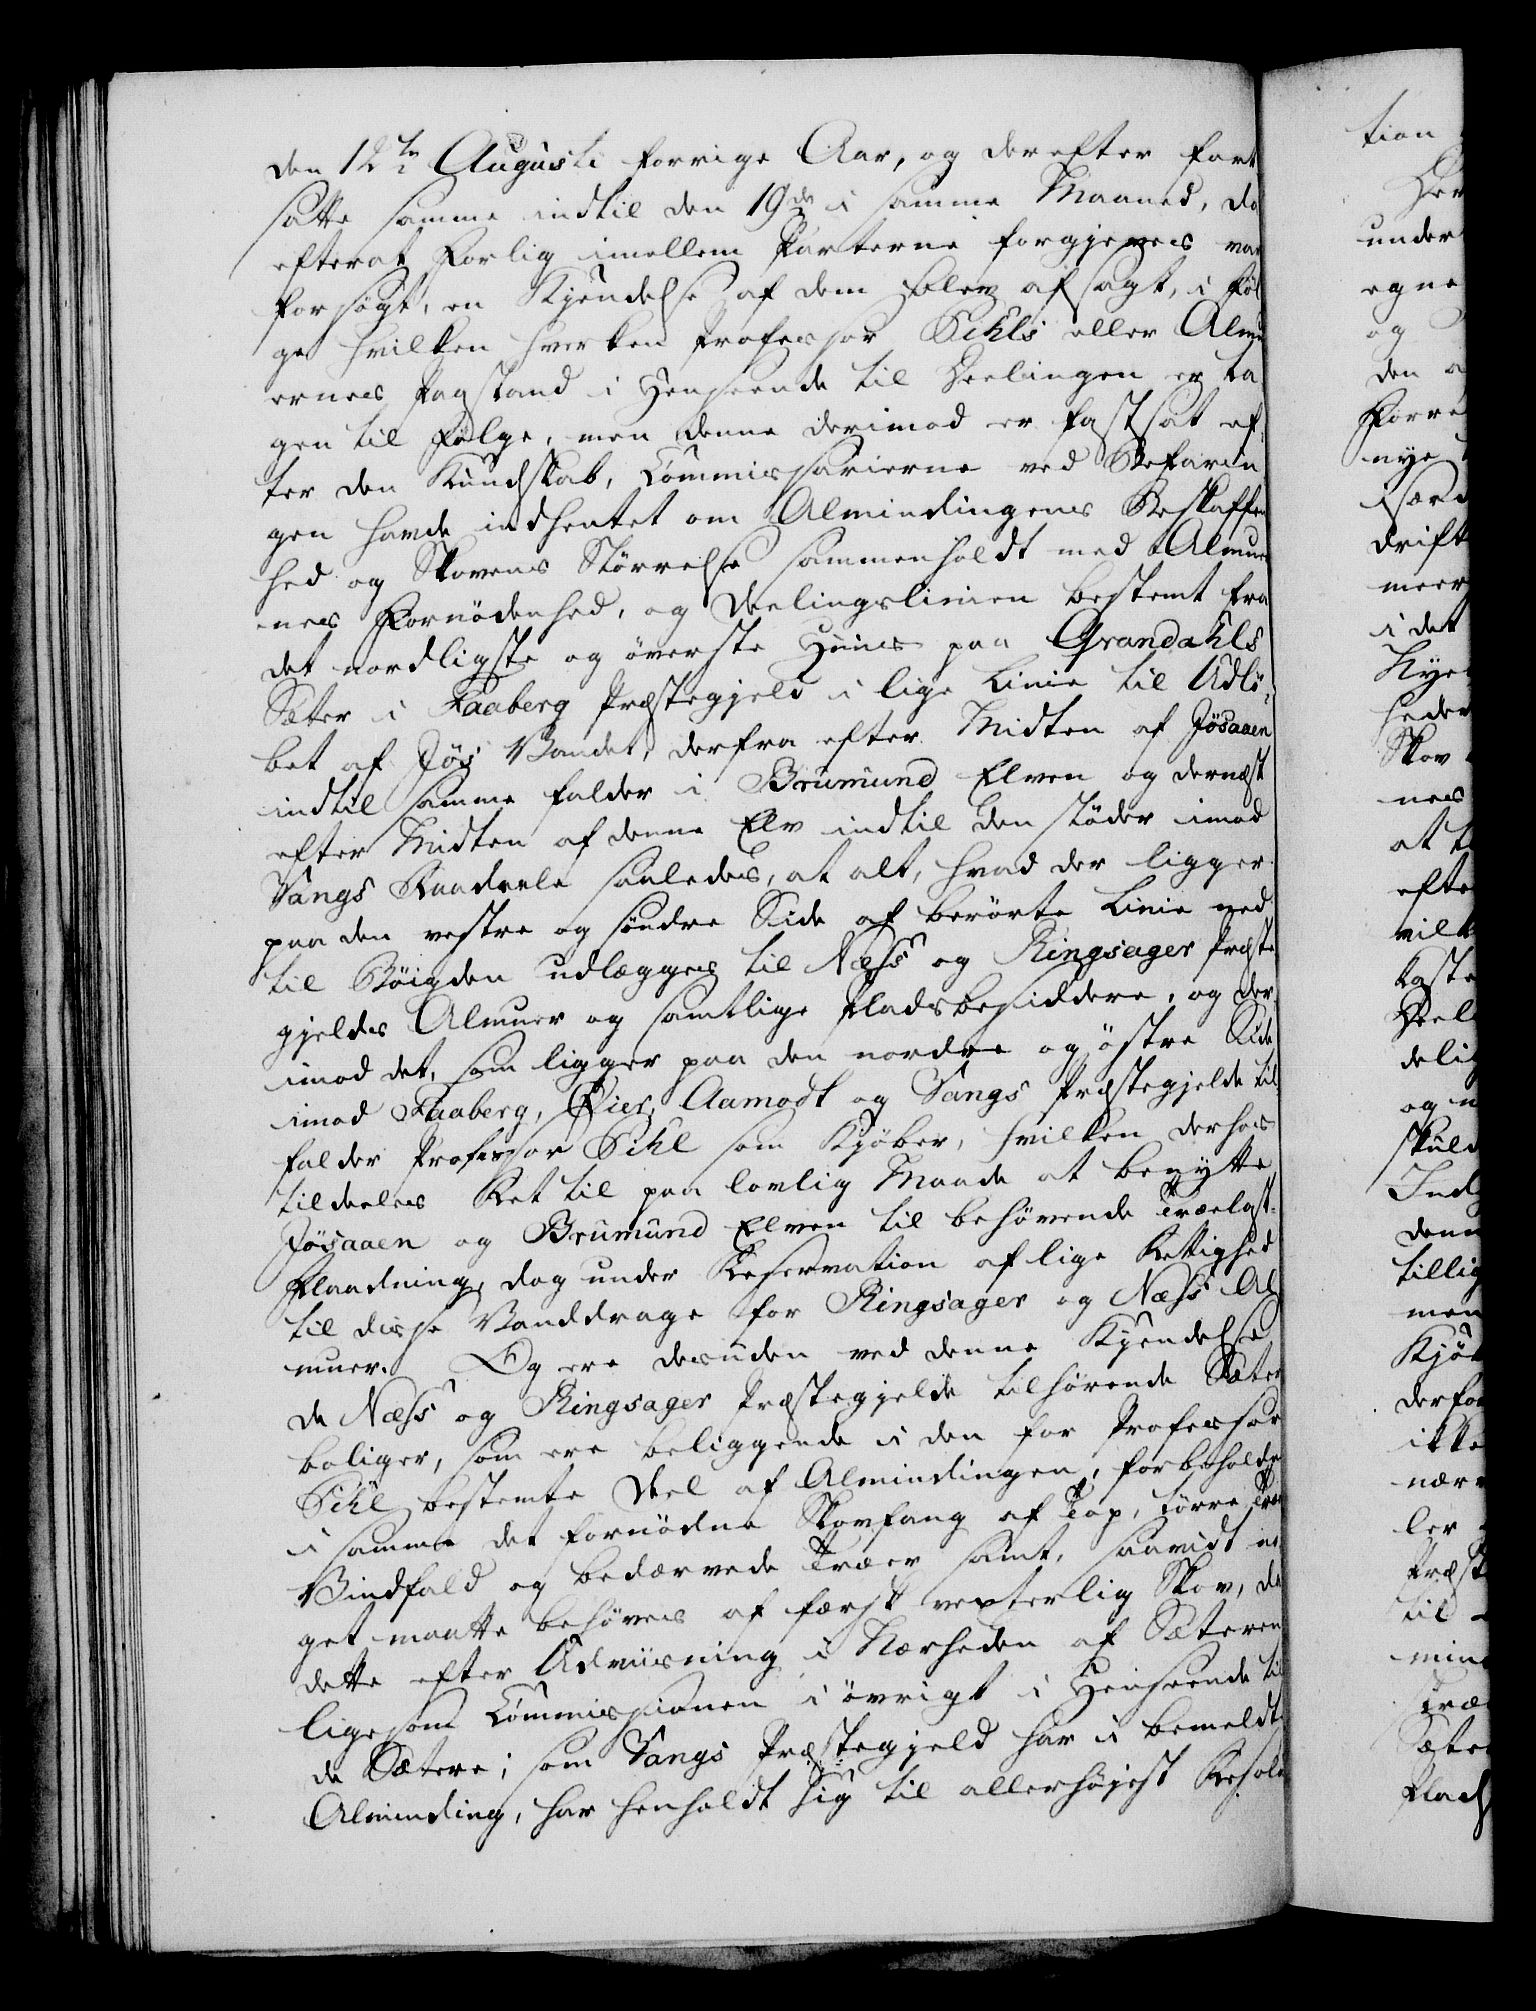 den 12te Augusti forrige Aar, og derefter fort
satte samme indtil den 19de i samme Maaned, da
efterat Forlig imellem Parterne forgjeves var
forsøgt, en Kjendelse af dem blev afsagt, i Føl
ge hvilken hverken Professor Pihls eller Almu
ernes Paastand i Henseende til Deelingen er ta
gen til Følge, men denne derimod er fastsat ef
ter den Kundskab, Commissarierne ved Befarin
gen havde indhentet om Almindingens Beskaffen
hed og Skovens Størrelse sammenholdt med Almuer
nes Fornødenhed, og Deelingslinien bestemt fra
det nordligste og øverste Huus paa Grandahls
Sæter i Faaberg Præstegjeld i lige Linie til Udlø-
bet af Jøs Vandet, derfra efter Midten af Jøsaaen
indtil samme falder i Brumund Elven og dernæst
efter Midten af denne Elv indtil den støder imod
Vangs Raadeele saaledes, at alt, hvad der ligger
paa den vestre og søndre Side af berørte Linie ned
til Bøigden udlægges til Næss og Ringsager Præste
gjelds Almuer og samtlige Pladsbesiddere, og der
imod det, som ligger paa den nordre og østre Side
imod Faaberg, Øier, Aamodt og Vangs Præstegjelde til
falder Professor Pihl som Kjøber, hvilken derhos
tildeeles Ret til paa lovlig Maade at benytte
Jøsaaen og Brumund Elven til behøvende Trælast-
Flaadning, dog under Reservation af lige Rettighed
til disse Vanddrage for Ringsager og Næss Al
muer. Og ere desuden ved denne Kjendelse
de Næss og Ringsager Præstegjelde tilhørende Sæter
boliger, som ere beliggende i den for Professor
Pihl bestemte Deel af Almindingen, forbeholdne
i samme det fornødne Skovfang af Top, tørre Træer
Vindfald og bedærvede Træer samt, saavidt no
get maatte behøves af færsk vexterlig Skov, da
dette efter Udviisning i Nærheden af Sæteren
ligesom Commissionen i øvrigt i Henseende til
de Sætere, som Vangs Præstegjeld har i bemeldte
Alminding, har henholdt sig til allerhøjest Resolu